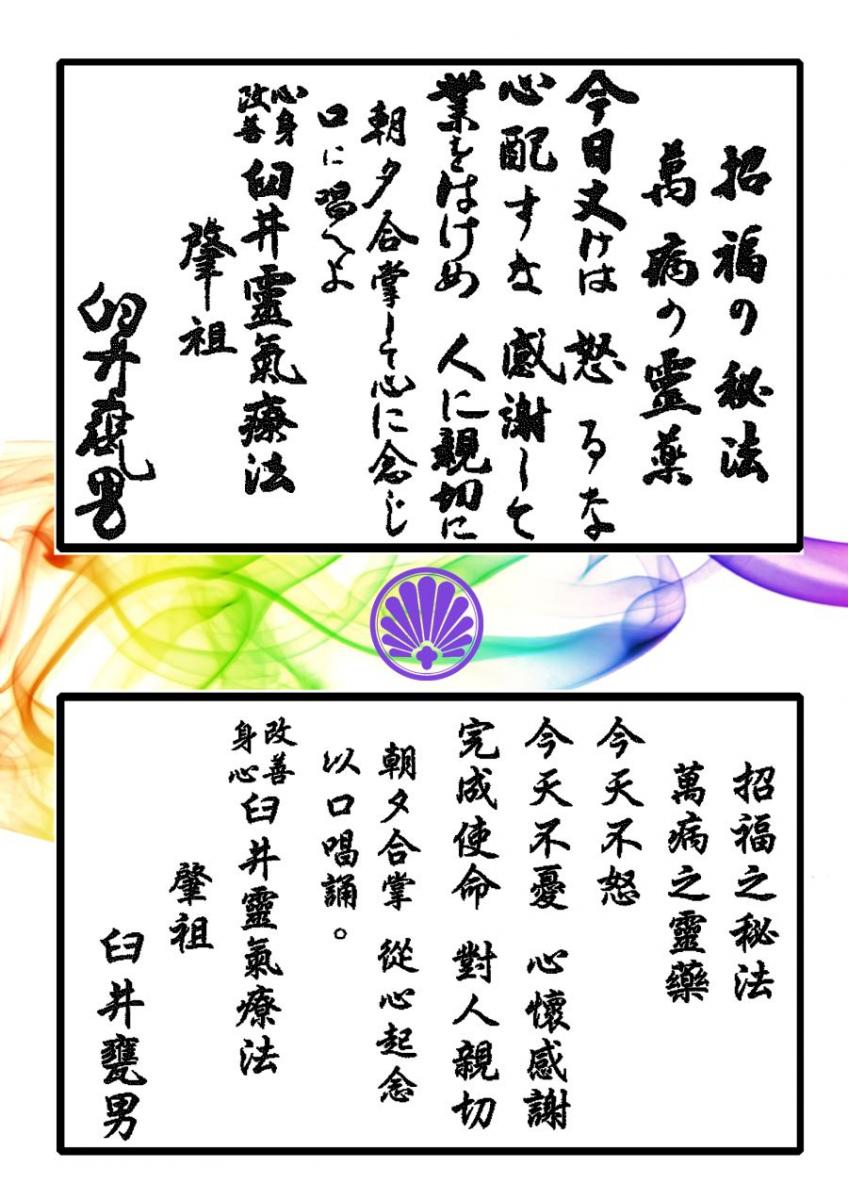 招福の秘法
萬病の靈薬
今日丈けは 怒るな
心配すな 感謝して
業をはけめ 人に親切に
朝夕合掌して心に念じ
口に唱へよ
心身
改善 臼井靈氣療法
肇祖
臼井甕男
招福之秘法
萬病之靈藥
今天不怒
今天不憂 心懷感謝
完成使命 對人親切
朝夕合掌 從心起念
以口唱誦。
改善
身心 臼井靈氣療法
肇祖
臼井甕男